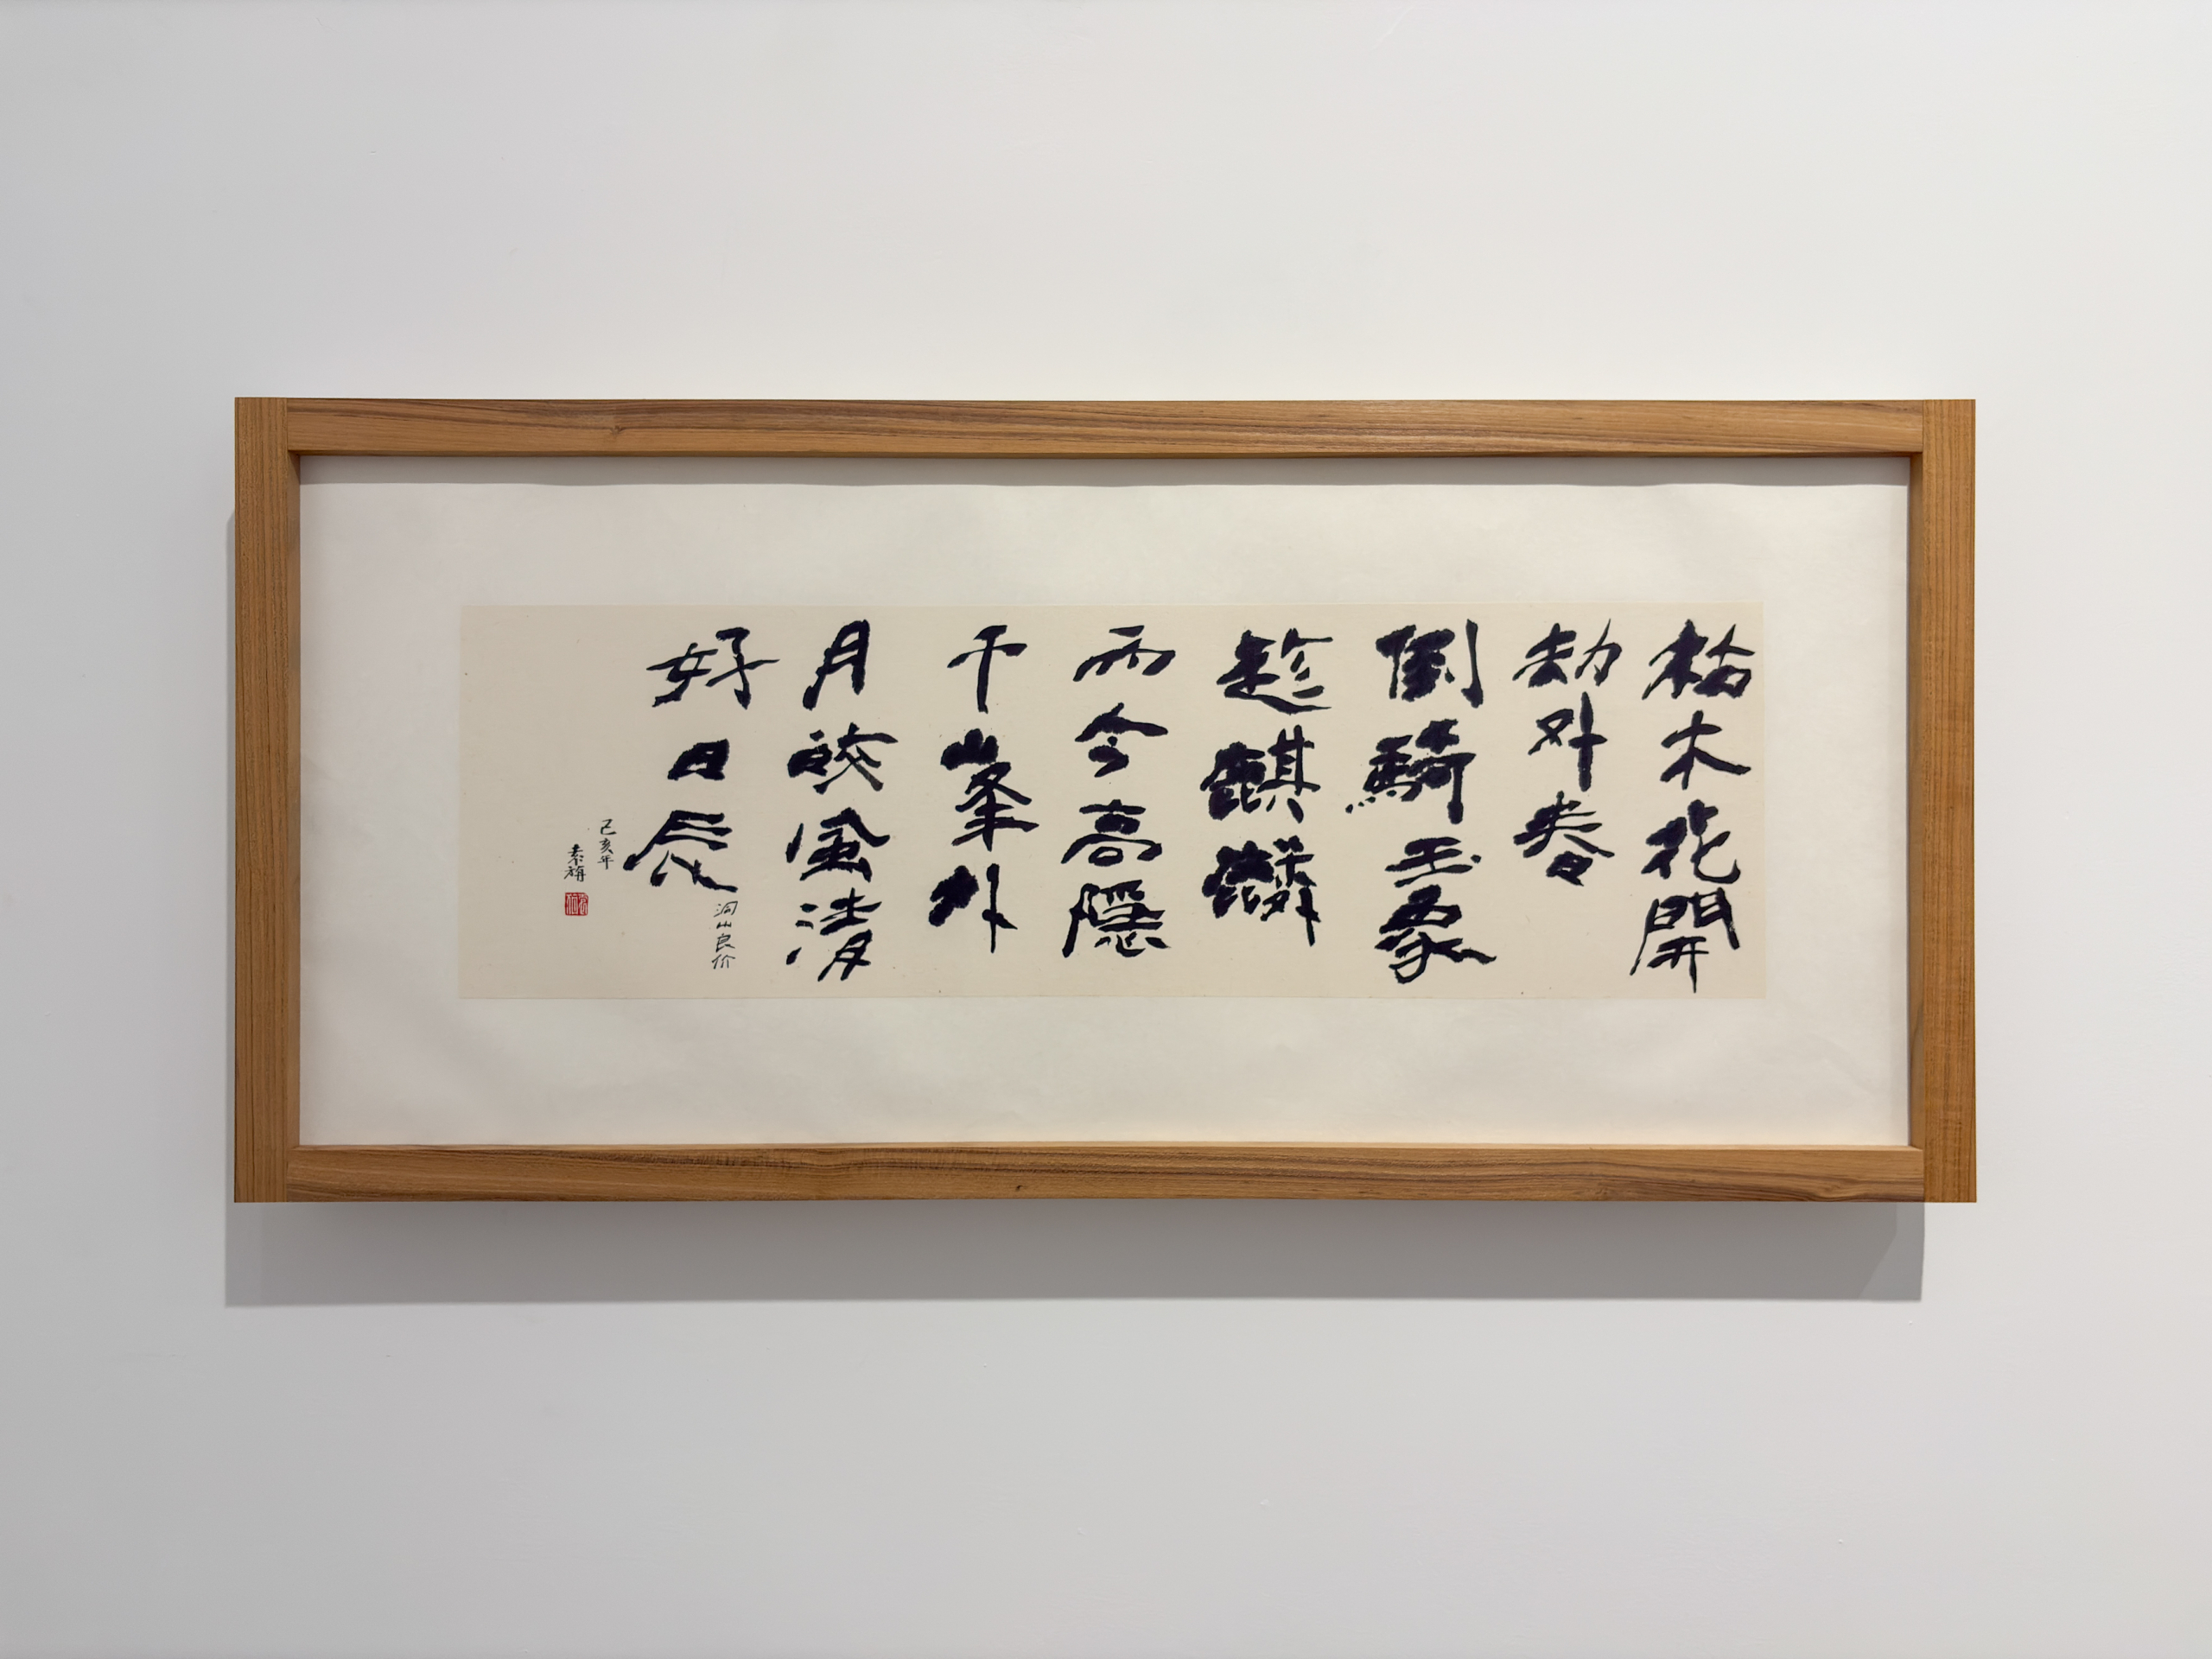 枯木花開
劫外春
倒騎玉象
趁麒麟
而今高隱
千峯外
月皎風清
好日辰
洞山良价
己亥年